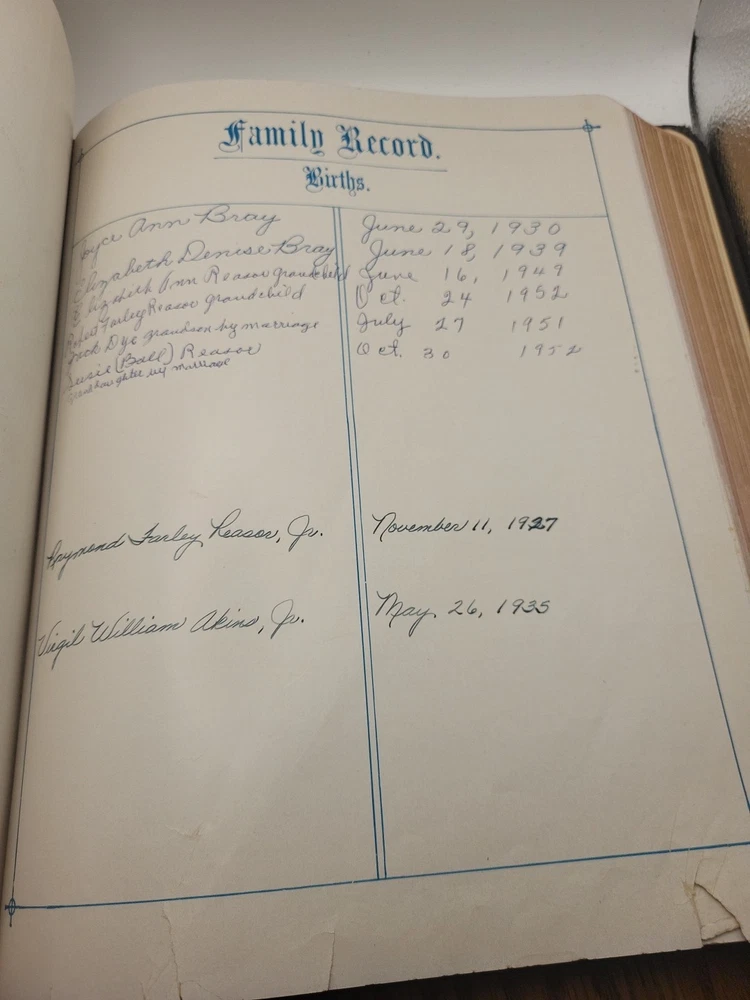 Family Record.
Births.
Joyce Ann Bray June 29, 1930
Elizabeth Denise Bray June 18, 1939
Elizabeth Ann Reasor grandchild June 16, 1949
Robert Farley Reasor grandchild Oct. 24 1952
Jack Dye grandson by marriage July 27 1951
Susie (Ball) Reasor Oct. 30 1952
granddaughter by marriage
Raymond Farley Reasor, Jr. November 11, 1927
Virgil William Akins, Jr. May 26, 1935